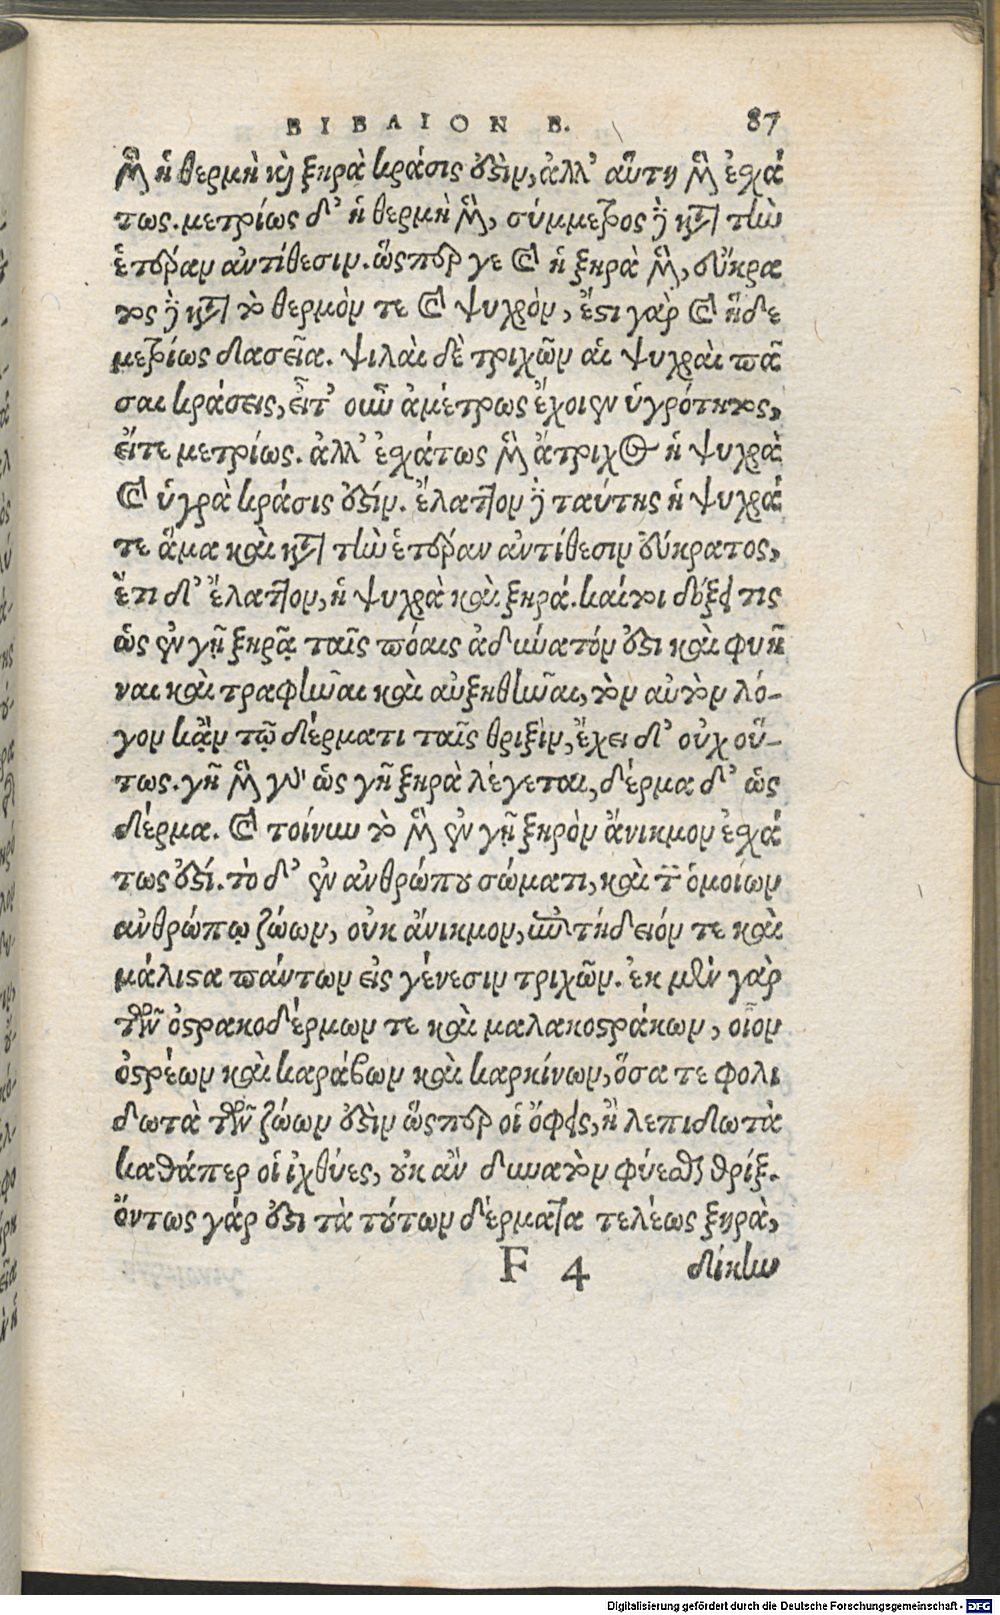 ΒΙΒΛΙΟΝ Β. 87
μὲν ἡ θερμὴ καὶ ξηρὰ κρᾶσις ἐστὶν, ἀλλ' αὕτη μὲν ἐσχά
τως. μετρίως δ' ἡ θερμὴ μὲν, σύμμετρος δὲ κατὰ τὴν
ἑτέραν ἀντίθεσιν. ὥσπερ γε καὶ ἡ ξηρὰ μὲν, εὔκρα
τος δὲ κατὰ τὸ θερμὸν τε καὶ ψυχρὸν, ἔστι γὰρ καὶ ἥδε
μετρίως δασεῖα. ψιλαὶ δὲ τριχῶν αἱ ψυχραὶ πᾶ
σαι κράσεις, εἴτ' οὖν ἀμέτρως ἔχοιεν ὑγρότητος,
εἴτε μετρίως. ἀλλ' ἐσχάτως μὲν ἄτριχος ἡ ψυχρὰ
καὶ ὑγρὰ κρᾶσις ἐστίν. ἔλαττον δὲ ταύτης ἡ ψυχρά
τε ἅμα καὶ κατὰ τὴν ἑτέραν ἀντίθεσιν εὔκρατος,
ἔτι δ' ἔλαττον, ἡ ψυχρὰ καὶ ξηρά. καίτοι δόξει τις
ὡς ἐν γῇ ξηρᾷ ταῖς πόαις ἀδύνατόν ἐστι καὶ φυῆ
ναι καὶ τραφῆναι καὶ αὐξηθῆναι, τὸν αὐτὸν λό-
γον κᾂν τῷ δέρματι ταῖς θριξὶν, ἔχει δ' οὐχ οὕ-
τως. γῆ μὲν γὰρ ὡς γῆ ξηρὰ λέγεται, δέρμα δ' ὡς
δέρμα. καὶ τοίνυν τὸ μὲν ἐν γῇ ξηρὸν ἄνικμον ἐσχά
τως ἐστί. τὸ δ' ἐν ἀνθρώπου σώματι, καὶ τῶν ὁμοίων
ἀνθρώπῳ ζώων, οὐκ ἄνικμον, ἐπιτήδειόν τε καὶ
μάλιστα πάντων εἰς γένεσιν τριχῶν. ἐκ μὲν γὰρ
τῶν ὀστρακοδέρμων τε καὶ μαλακοστράκων, οἷον
ὀστρέων καὶ καράβων καὶ καρκίνων, ὅσα τε φολι
δωτὰ τῶν ζώων ἐστὶν ὥσπερ οἱ ὄφεις, ἢ λεπιδωτὰ
καθάπερ οἱ ἰχθύες, οὐκ ἂν δύναιτο φύεσθαι θρίξ.
ὄντως γάρ ἐστι τὰ τούτων δέρματα τελέως ξηρὰ,
F 4 δίκην